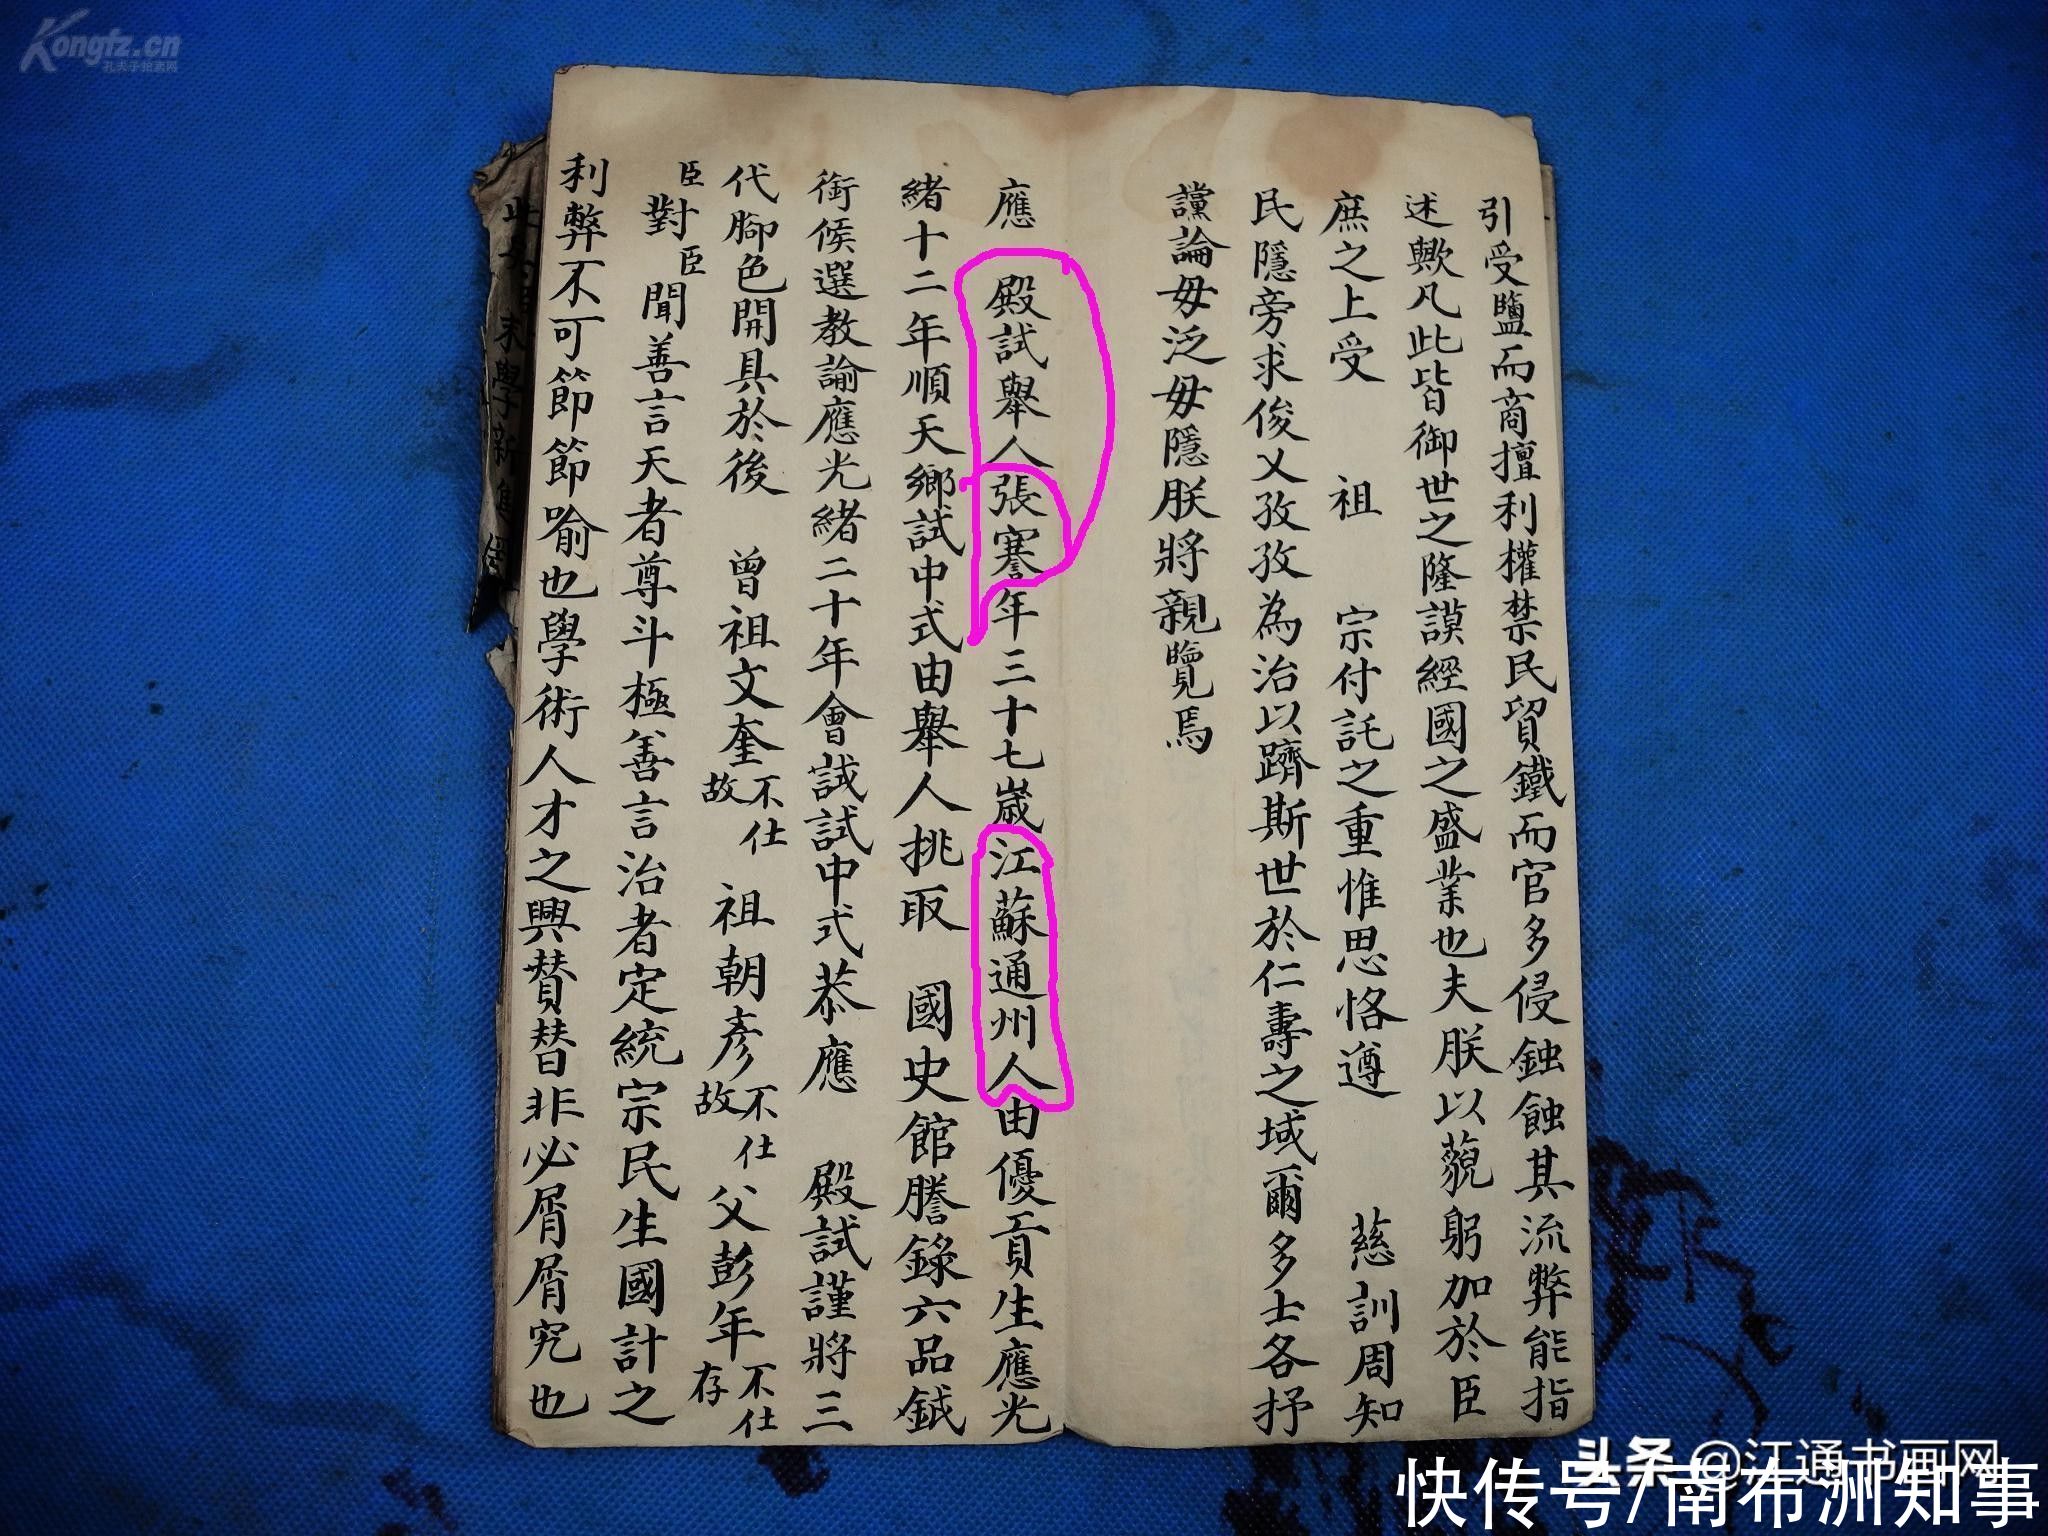 Kongfz.cn
孔夫子拍卖网
引受鹽而商擅利權禁民貿鐵而官多侵蝕蝕其流弊能指
述歟凡此皆御世之隆謨經國之盛業也夫朕以藐躬加於臣
庶之上受 祖 宗付託之重惟思恪遵 慈訓周知
民隱旁求俊乂孜孜為治以躋斯世於仁壽之域爾多士各抒
讜論毋泛毋隱朕將親覽焉
應 殿試舉人張謇年三十七歲江蘇通州人由優貢生應光
緒十二年順天鄉試中式由舉人挑取 國史館謄錄六品銊
銜候選教諭應光緒二十年會試試中式恭應 殿試謹將三
代腳色開具於後 曾祖文奎不仕故 祖朝彥不仕故 父彭年不仕存
臣對臣聞善言天者尊斗極善言治者定統宗民生國計之
利弊不可節節喻也學術人才之興贊替非必屑屑究也
末學新
头条 @江通书画网
快传号/南布洲知事